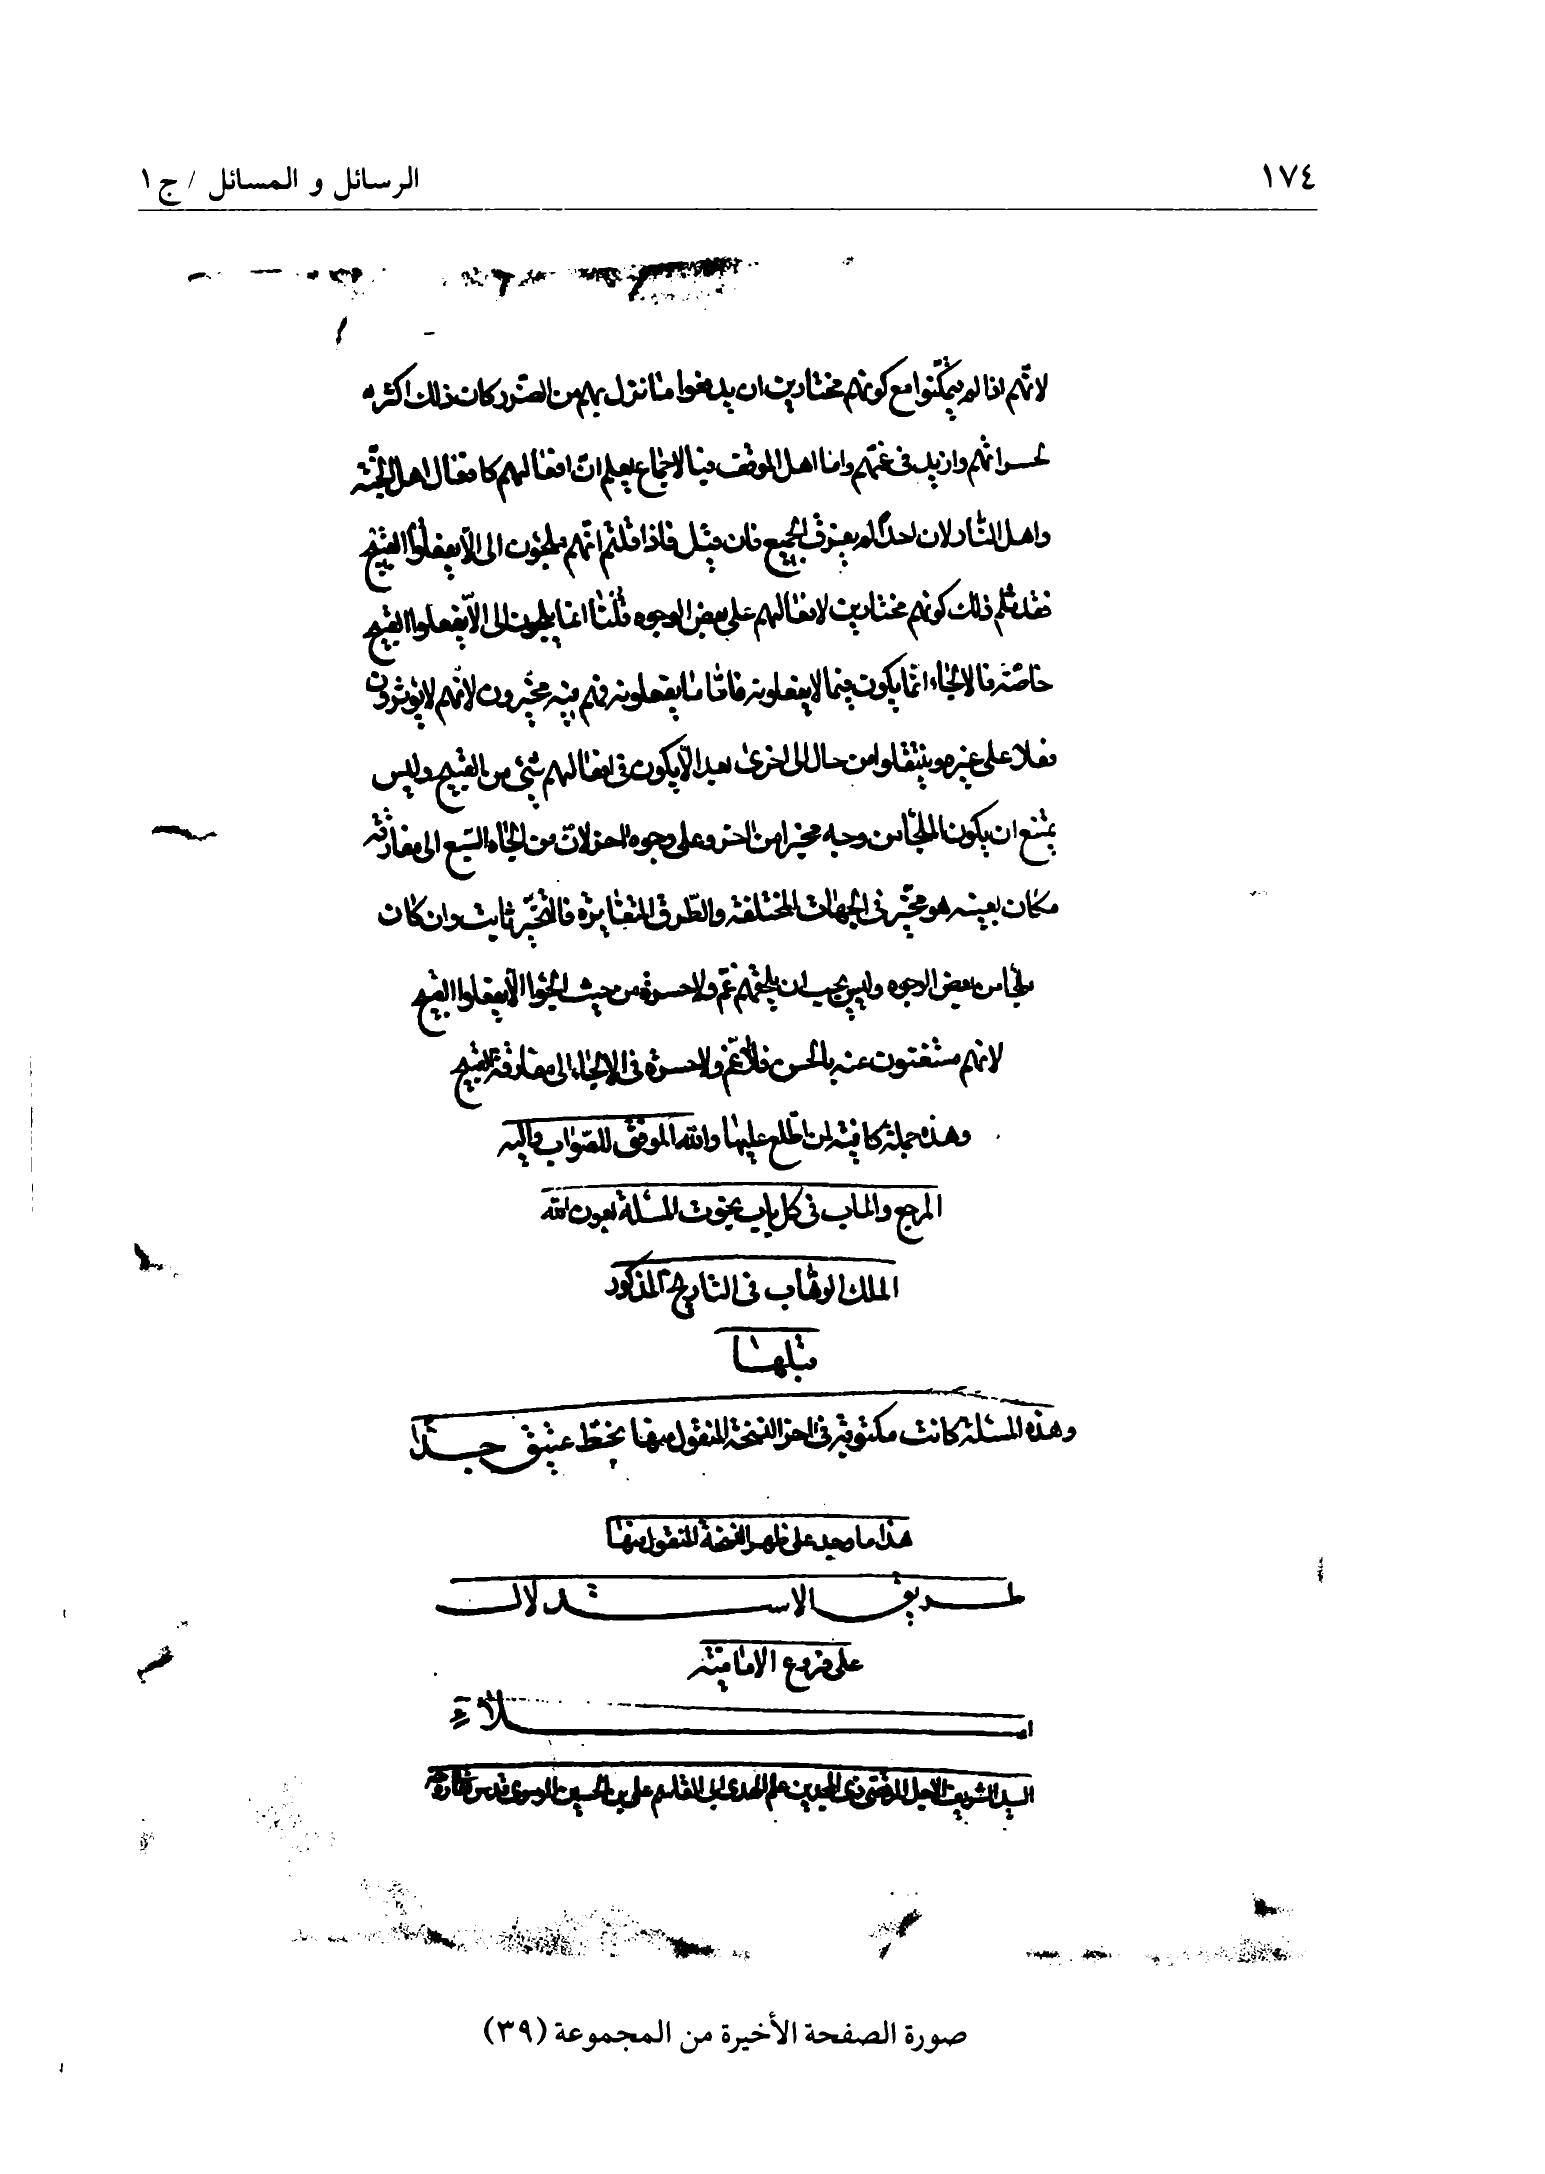 ١٧٤
الرسائل و المسائل / ج ١
لانّهم اذا لم يتمكّنوا مع كونهم مختارين ان يدفعوا ما نزل بهم من الضّرر كان ذلك اكثر
لحسراتهم وازيد فى غمّهم واما اهل الموقف فبالاجماع يعلم انّ افعالهم كافعال اهل الجنّة
واهل النّار لان احدًا لم يفرق الجميع فان قيل فاذا قلتم انّهم ملجؤن الى الّا يفعلوا القبيح
فقد ثلم ذلك كونهم مختارين لافعالهم على بعض الوجوه قُلنا انما يلجون الى الّا يفعلوا القبيح
خاصّة فالالجاء انّما يكون فيما لا يفعلونه فامّا ما يفعلونه فهم فيه مخيّرون لانّهم لا يؤثرون
فعلا على غيره وينتقلوا من حال الى اخرى بعد الّا يكون فى افعالهم شئ من القبيح وليس
يمتنع ان يكون الملجأ من وجه مخيرا من اخر وعلى وجوه اخر لانّ من الجاه السّبع الى مفارقة
مكان بعينه هو مخيّر فى الجهات المختلفة والطّرق المتغايرة فالتخيّر ثابت وان كان
ملجأ من بعض الوجوه وليس يجب ان يلحقهم غمّ ولا حسرة من حيث الجئوا الّا يفعلوا القبيح
لانهم مستغنون عنه بالحسن فلا غمّ ولا حسرة فى الالجاء الى مفارقة القبيح
وهذه جملة كافية لمن اطّلع عليها والله الموفق للصّواب واليه
المرجع والماب فى كل باب نجزت المسئلة بعون الله
الملك الوهّاب فى التاريخ المذكور
قبلها
وهذه المسئلة كانت مكتوبة فى اخر النسخة المنقول منها بخطّ عتيق جدّا
هذا ما وجد على ظهر النسخة المنقول منها
طريق الاستدلال
على فروع الامامية
املاء
السيد الشريف الاجل المرتضى ذى المجدين علم الهدى ابى القاسم على بن الحسين الموسوى قدس الله روحه
صورة الصفحة الأخيرة من المجموعة (٣٩)